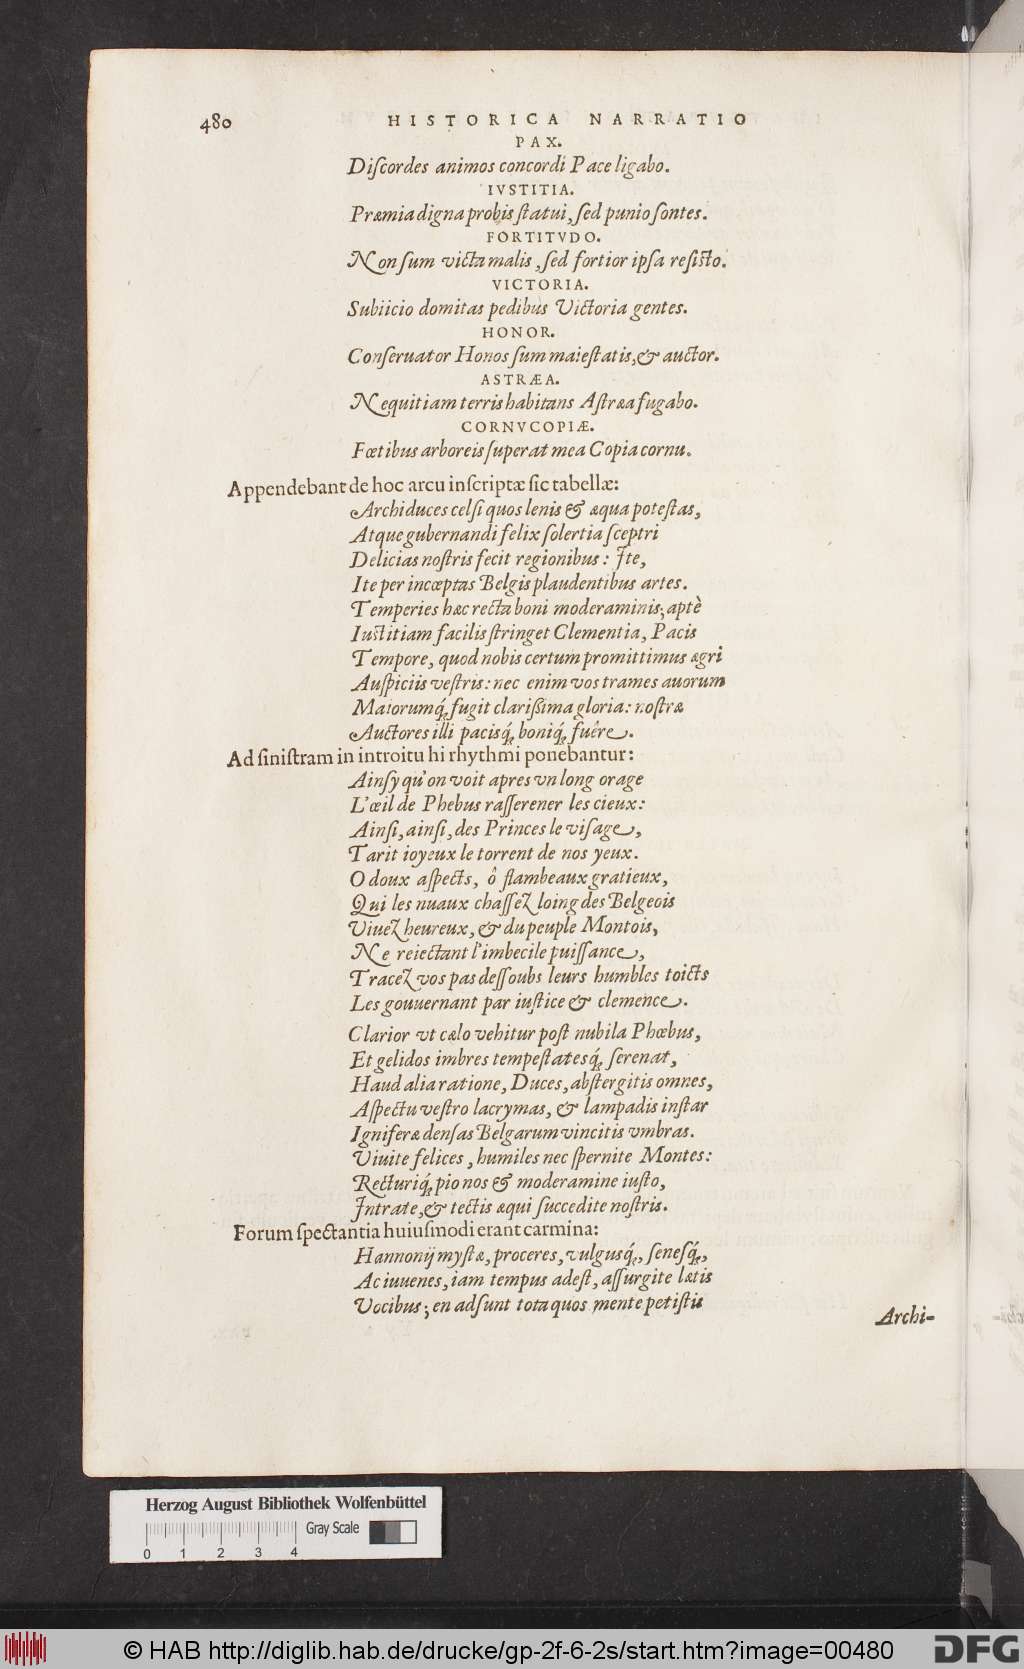 480 HISTORICA NARRATIO
PAX.
Diſcordes animos concordi Pace ligabo.
IVSTITIA.
Præmia digna probis ſtatui, ſed punio ſontes.
FORTITVDO.
Non ſum victa malis, ſed fortior ipſa reſiſto.
VICTORIA.
Subiicio domitas pedibus Victoria gentes.
HONOR.
Conſeruator Honos ſum maieſtatis, & auctor.
ASTRÆA.
Nequitiam terris habitans Aſtræa fugabo.
CORNVCOPIÆ.
Fœtibus arboreis ſuperat mea Copia cornu.
Appendebant de hoc arcu inſcriptæ ſic tabellæ:
Archiduces celſi quos lenis & æqua poteſtas,
Atque gubernandi felix ſolertia ſceptri
Delicias noſtris fecit regionibus: Ite,
Ite per incœptas Belgis plaudentibus artes.
Temperies hæc recta boni moderaminis; aptè
Iuſtitiam facilis ſtringet Clementia, Pacis
Tempore, quod nobis certum promittimus ægri
Auſpiciis veſtris: nec enim vos trames auorum
Maiorumq́; fugit clariſſima gloria: noſtræ
Auctores illi pacisq́; boniq́; fuêre.
Ad ſiniſtram in introitu hi rhythmi ponebantur:
Ainſy qu'on voit apres vn long orage
L'œil de Phebus raſſerener les cieux:
Ainſi, ainſi, des Princes le viſage,
Tarit ioyeux le torrent de nos yeux.
O doux aſpects, ô flambeaux gratieux,
Qui les nuaux chaſſez loing des Belgeois
Viuez heureux, & du peuple Montois,
Ne reiectant l'imbecile puiſſance,
Tracez vos pas deſſoubs leurs humbles toicts
Les gouuernant par iuſtice & clemence.
Clarior vt cælo vehitur poſt nubila Phœbus,
Et gelidos imbres tempeſtatesq́; ſerenat,
Haud alia ratione, Duces, abſtergitis omnes,
Aſpectu veſtro lacrymas, & lampadis inſtar
Igniferæ denſas Belgarum vincitis vmbras.
Viuite felices, humiles nec ſpernite Montes:
Recturiq́; pio nos & moderamine iuſto,
Intrate, & tectis æqui ſuccedite noſtris.
Forum ſpectantia huiuſmodi erant carmina:
Hannonij myſtæ, proceres, vulguſq́;, ſeneſq́;,
Ac iuuenes, iam tempus adeſt, aſſurgite lætis
Vocibus; en adſunt tota quos mente petiſtis
Archi-
Herzog August Bibliothek Wolfenbüttel
Gray Scale
0 1 2 3 4
© HAB http://diglib.hab.de/drucke/gp-2f-6-2s/start.htm?image=00480
DFG